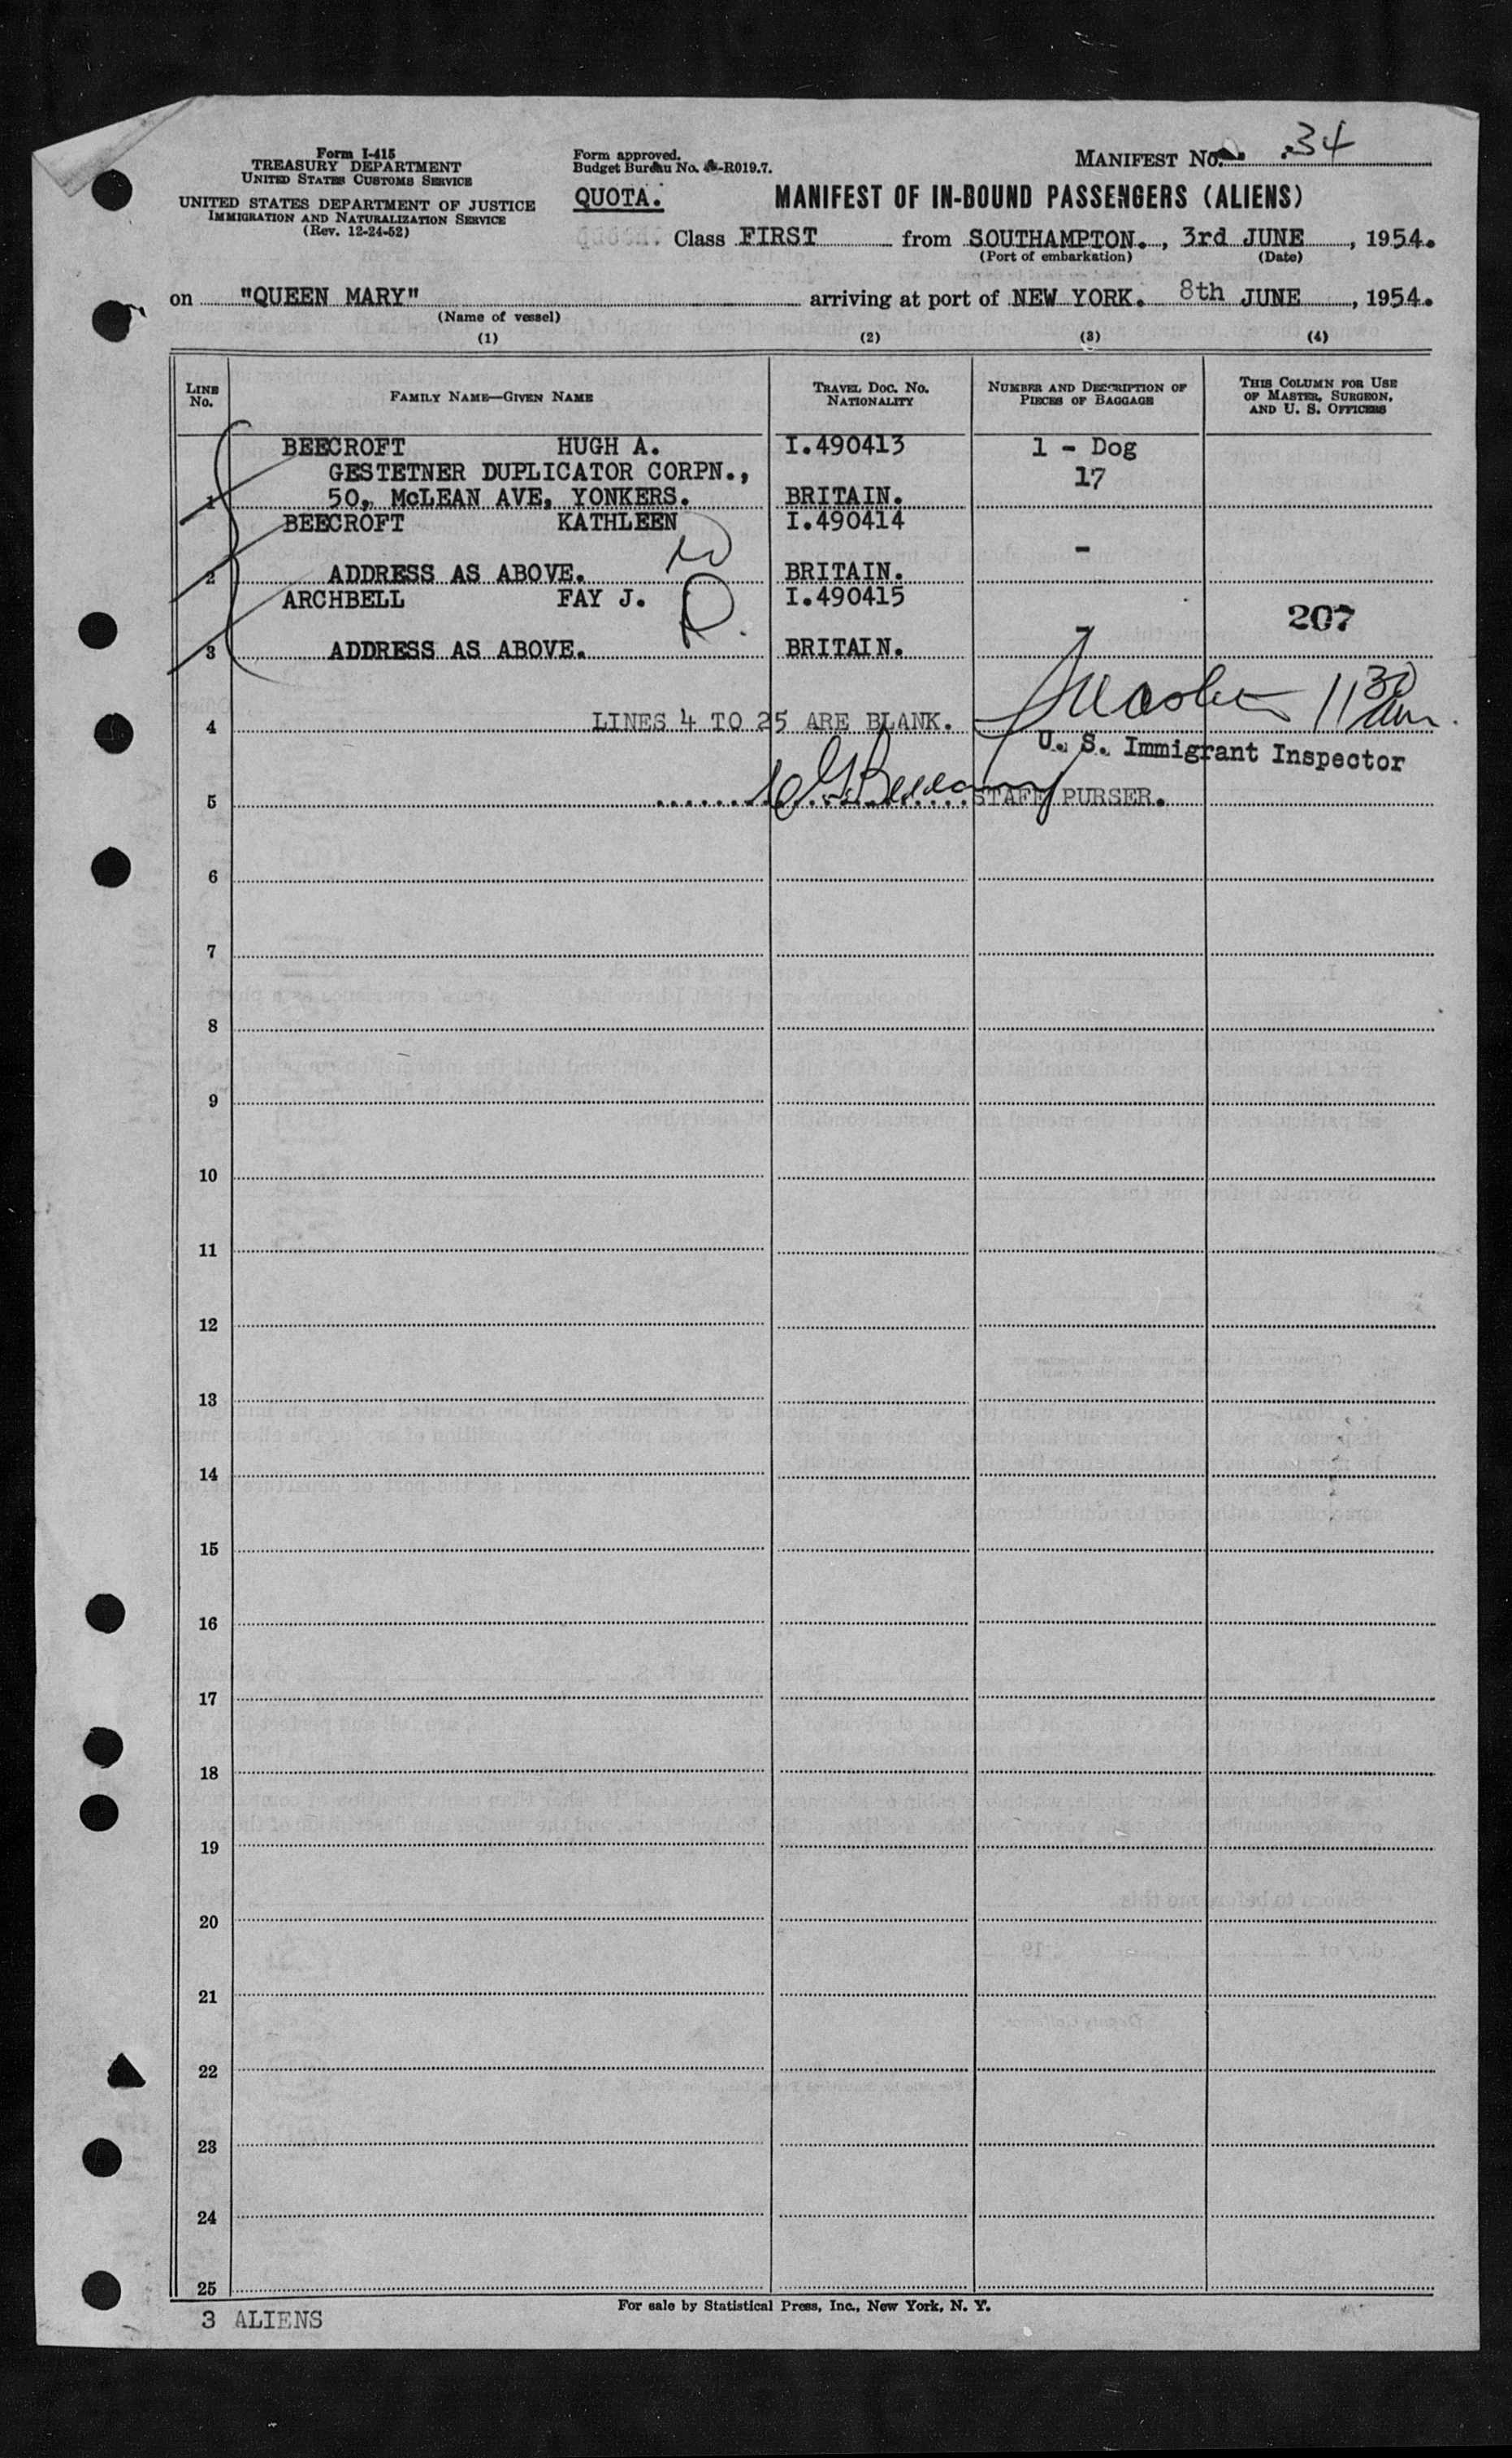 Form I-415
TREASURY DEPARTMENT
UNITED STATES CUSTOMS SERVICE
UNITED STATES DEPARTMENT OF JUSTICE
IMMIGRATION AND NATURALIZATION SERVICE
(Rev. 12-24-52)
Form approved.
Budget Bureau No. -R019.7.
QUOTA.
MANIFEST No. 34
MANIFEST OF IN-BOUND PASSENGERS (ALIENS)
Class FIRST from SOUTHAMPTON., 3rd JUNE, 1954.
(Port of embarkation) (Date)
on "QUEEN MARY" arriving at port of NEW YORK. 8th JUNE, 1954.
(Name of vessel)
(1) (2) (3) (4)
LINE No. FAMILY NAME—GIVEN NAME TRAVEL DOC. No. NATIONALITY NUMBER AND DESCRIPTION OF PIECES OF BAGGAGE THIS COLUMN FOR USE OF MASTER, SURGEON, AND U. S. OFFICERS
BEECROFT HUGH A. I.490413 1 - Dog
GESTETNER DUPLICATOR CORPN., 17
1 50, McLEAN AVE, YONKERS. BRITAIN.
BEECROFT KATHLEEN I.490414
-
2 ADDRESS AS ABOVE. BRITAIN.
ARCHBELL FAY J. I.490415
207
3 ADDRESS AS ABOVE. - BRITAIN.
11 30 am.
4 LINES 4 TO 25 ARE BLANK.
U. S. Immigrant Inspector
5 STAFF PURSER.
6
7
8
9
10
11
12
13
14
15
16
17
18
19
20
21
22
23
24
25
For sale by Statistical Press, Inc., New York, N. Y.
3 ALIENS